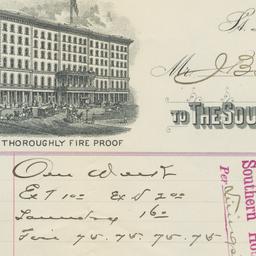 St.
Mr. J. B
THOROUGHLY FIRE PROOF
TO THE SOU
One Week
Ex T 1 00 Ex D 2 00
Laundry 1 60
Fire 75. 75. 75. 75
Southern Ho
Per